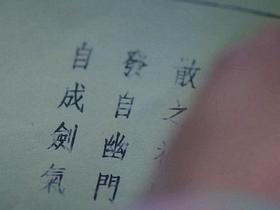 散之
發自幽門
自成劍氣